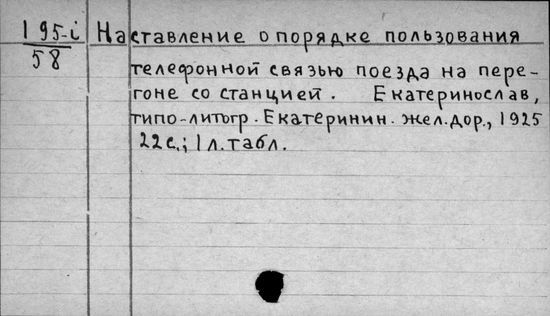 195-i
58
Наставление о порядке пользования
телефонной связью поезда на пере-
гоне со станцией. Екатеринослав,
типо-литогр. Екатеринин. жел.дор., 1925
22с.; 1 л. табл.